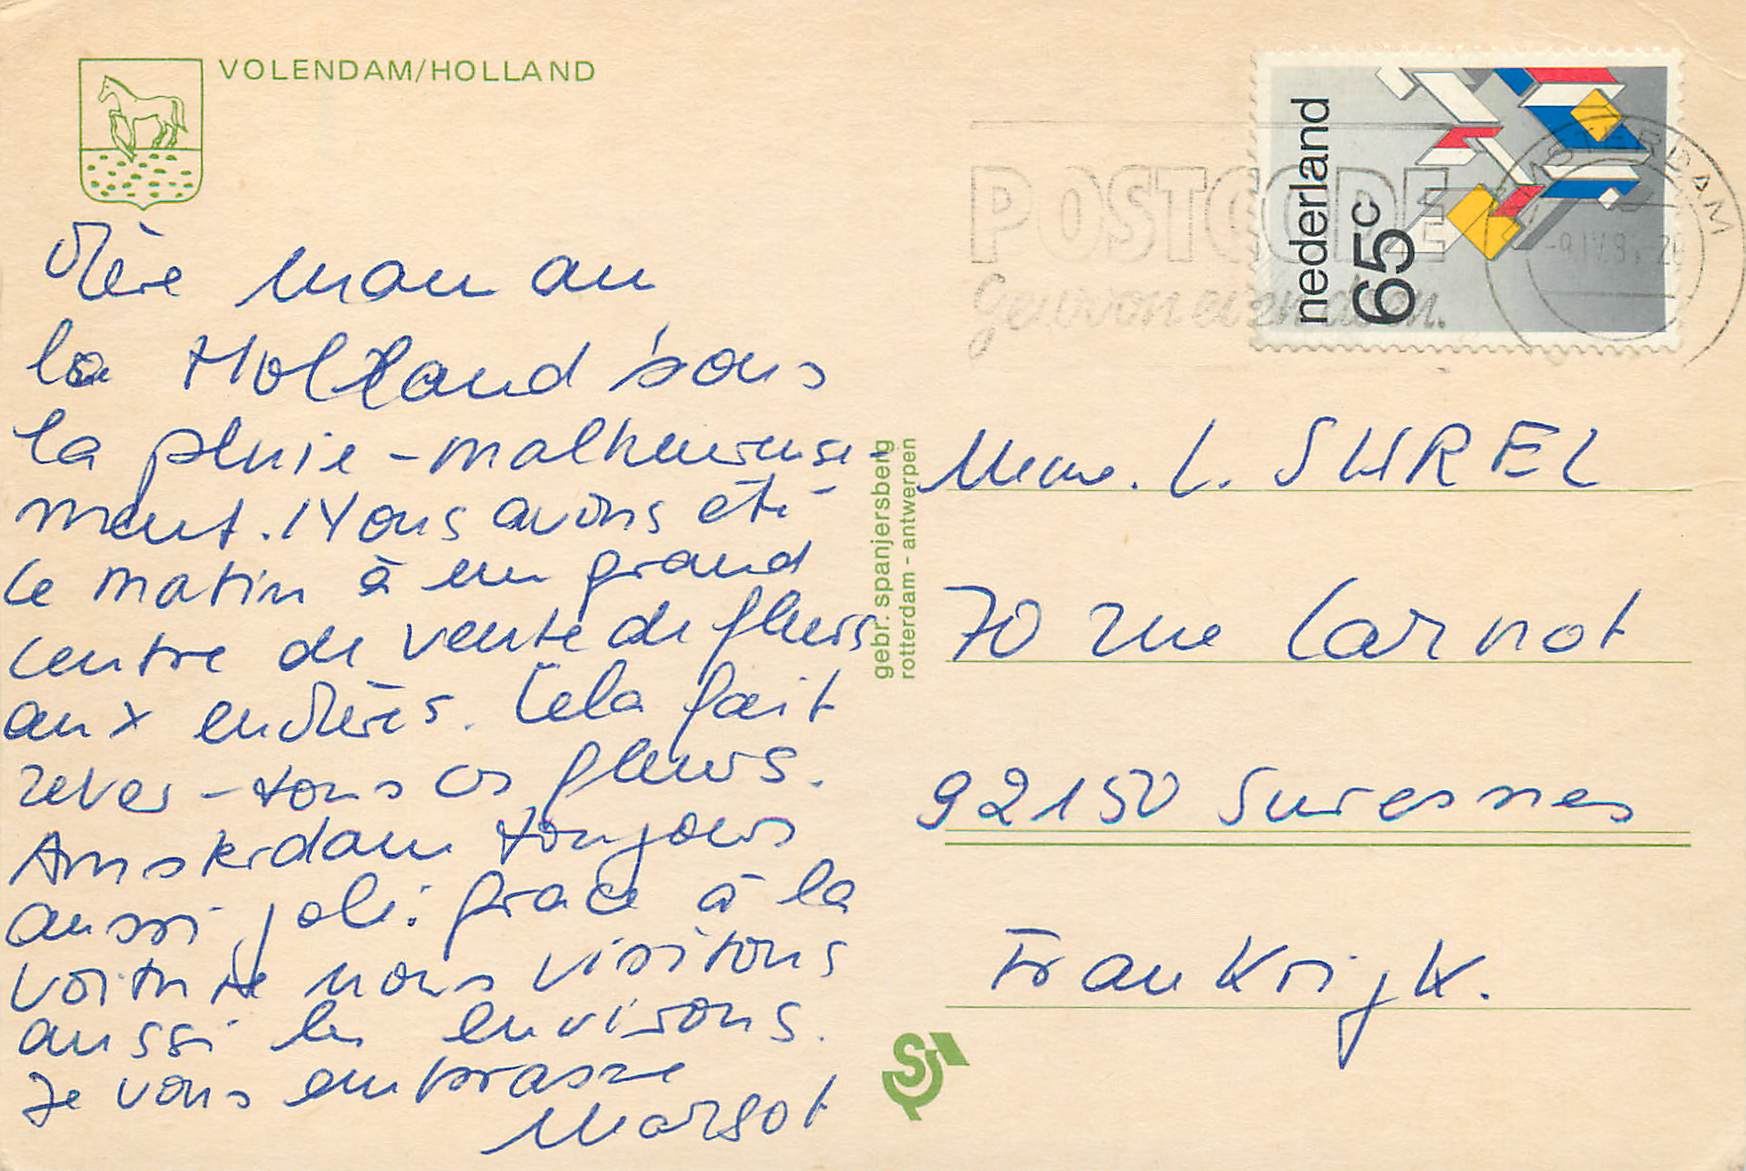 VOLENDAM/HOLLAND
nederland
65c
POSTCODE
Gewoon even doen.
AMSTERDAM
la Holland sous
la pluie - malheureuse-
ment. Nous avons été
le matin à un grand
centre de vente de fleurs
aux enchères. Cela fait
rever - tous ces fleurs.
Amsterdam toujours
aussi joli. grace à la
voiture nous visitons
aussi les environs.
Je vous embrasse
Margot
gebr. spanjersberg
rotterdam - antwerpen
Mme. L. SUREL
70 rue Carnot
92150 Suresnes
Frankrijk.